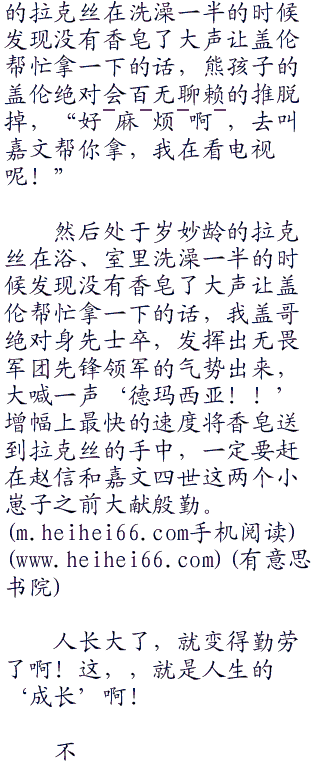 的拉克丝在洗澡一半的时候
发现没有香皂了大声让盖伦
帮忙拿一下的话，熊孩子的
盖伦绝对会百无聊赖的推脱
掉，“好ˉ麻ˉ烦ˉ啊ˉ，去叫
嘉文帮你拿，我在看电视
呢！”
然后处于岁妙龄的拉克
丝在浴、室里洗澡一半的时
候发现没有香皂了大声让盖
伦帮忙拿一下的话，我盖哥
绝对身先士卒，发挥出无畏
军团先锋领军的气势出来，
大喊一声‘德玛西亚！！’
增幅上最快的速度将香皂送
到拉克丝的手中，一定要赶
在赵信和嘉文四世这两个小
崽子之前大献殷勤。
(m.heihei66.com手机阅读)
(www.heihei66.com)(有意思
书院)
人长大了，就变得勤劳
了啊！这，，就是人生的
‘成长’啊！
不